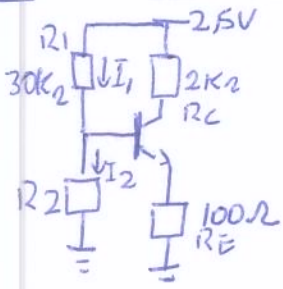 2,5V
R1
30KΩ
I1
2KΩ
RC
I2
R2
100Ω
RE